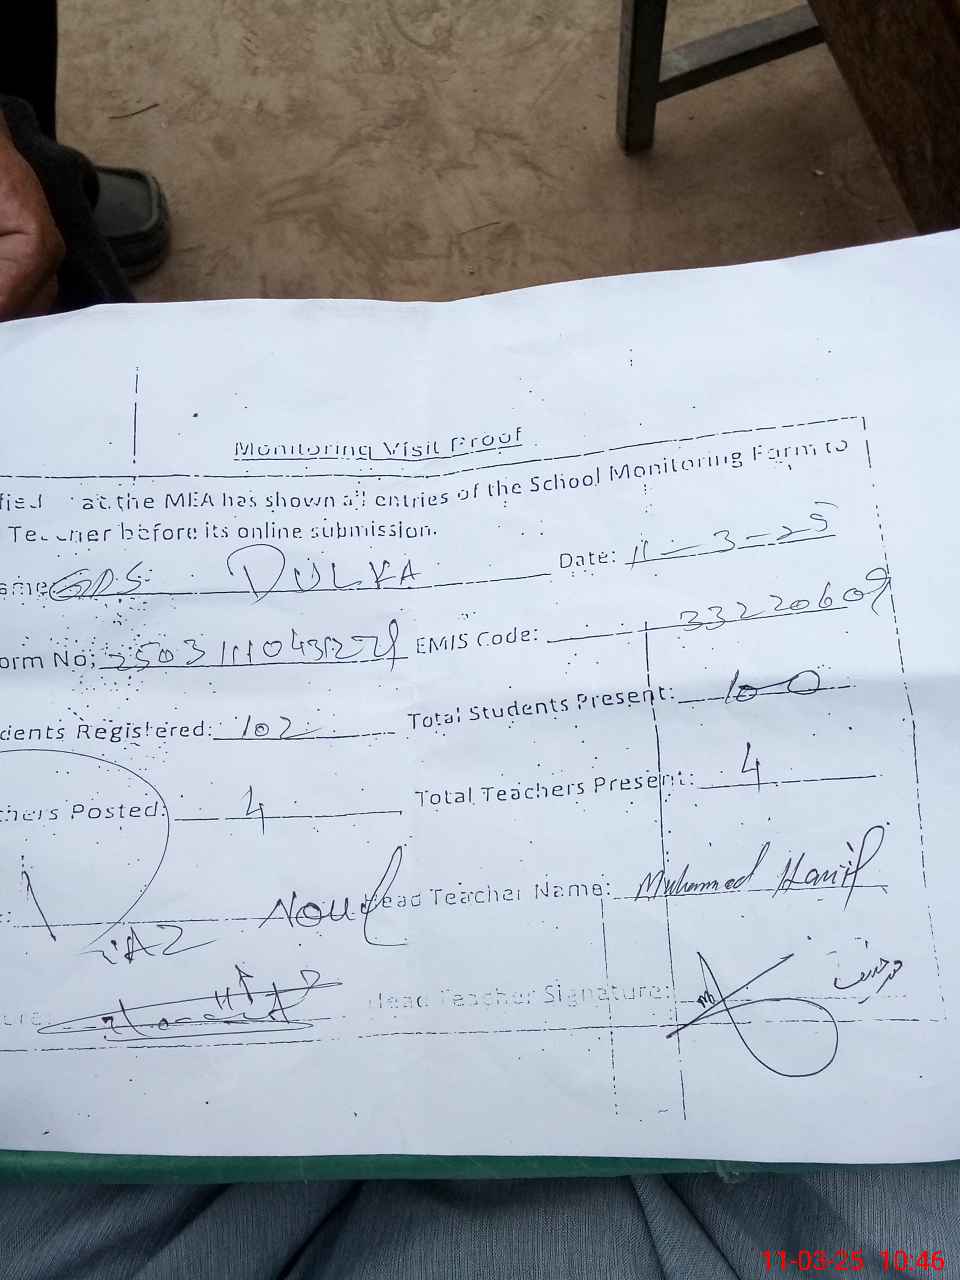 Monitoring Visit Proof
at the MEA has shown all entries of the School Monitoring Form to
Teacher before its online submission.
ame GPS DULKA Date: 11-3-25
orm No: EMIS Code: 33220609
dents Registered: 102 Total Students Present: 100
chers Posted: 4 Total Teachers Present: 4
Head Teacher Name: Muhammad Hanif
Head Teacher Signature:
11-03-25 10:46